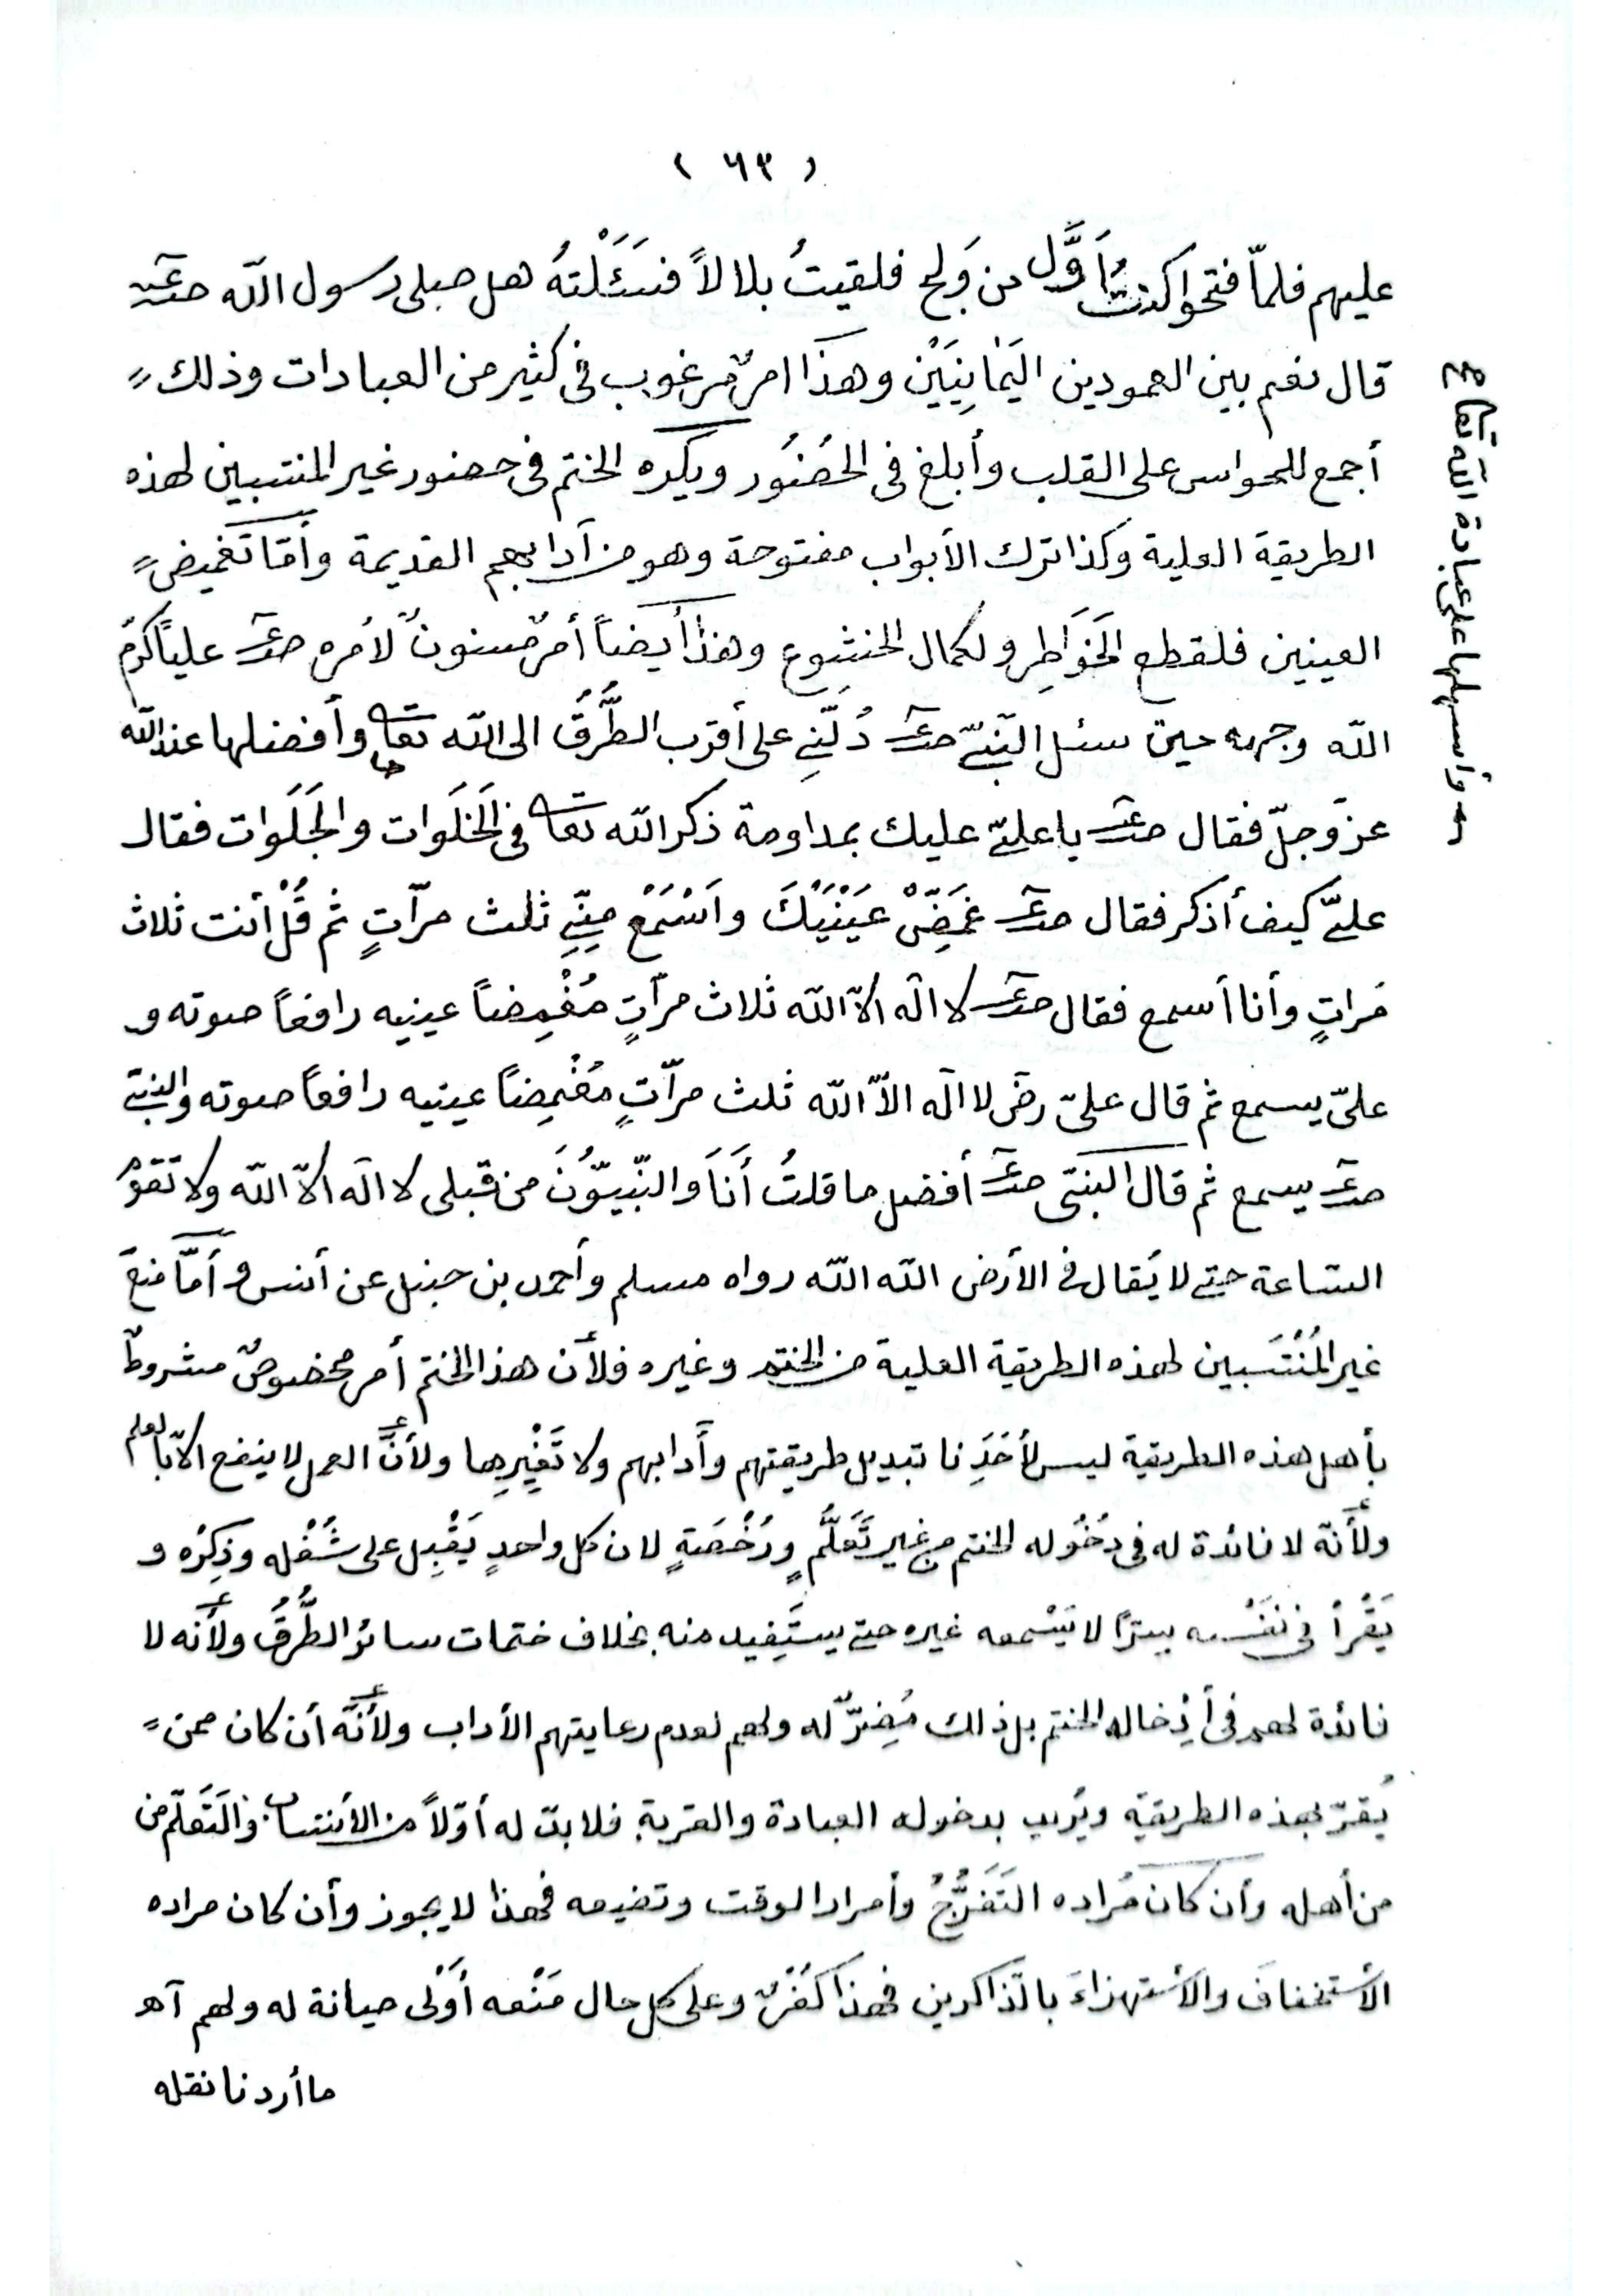 ( ٦٣ )
عليهم فلمّا فتحوا كنتُ أَوَّل من وَلج فلقيتُ بلالاً فسَئَلْتهُ هل صلى رسول الله صلعم
قال نعم بين العمودين اليَمٰانِيَيْن وهذا امرٌ مرغوب فى كثير من العبادات وذلك
أجمع للحواس على القلب وأبلغ فى الحُضُور ويكره الختم فى حضور غير المنتسبين لهذه
الطريقة العلية وكذا ترك الأبواب مفتوحة وهو من آدابهم القديمة وأمّا تغميض
العينين فلقطع الخَوَاطِر ولكمال الخشوع وهذا أيضاً أمرٌ مسنونٌ لأمره صلعم عليًا كرّم
الله وجهه حين سئل النّبىّ صلعم دُلَّنِى على أقرب الطُّرُق الى الله تعا وأفضلها عند الله
عزّ وجلّ فقال صلعم يا علىّ عليك بمداومة ذكر الله تعا فى الخَلَوات والجَلَوات فقال
علىّ كيف أذكر فقال صلعم غَمِّضْ عَيْنَيْكَ واسْمَعْ مِنِّى ثلث مرّاتٍ ثم قُلْ أنت ثلاث
مَراتٍ وأنا أسمع فقال صلعم لا اله الاّ الله ثلاث مرّاتٍ مُغْمِضاً عينيه رافعاً صوته و
علىّ يسمع ثم قال علىّ رض لا اله الاّ الله ثلث مرّاتٍ مُغْمِضاً عينيه رافعاً صوته والنبىّ
صلعم يسمع ثم قال النبىّ صلعم أفضل ما قلتُ أَنَا وَالنّبيّوُنَ من قبلى لا اله الاّ الله ولا تَقومُ
الساعة حتى لا يُقال فى الأرض الله الله رواه مسلم وأحمد بن حنبل عن أنس وأمّا منعَ
غير المُنْتَسبين لهذه الطريقة العلية من الختم وغيره فلأن هذا الختم أمر مخصوصٌ مشروطٌ
بأهل هذه الطريقة ليس لأحَدِنا تبديل طريقتهم وآدابهم ولا تَغْيِيرِها ولأنّ العمل لا ينفع الاّ بالعلم
ولأنّه لا فائدة له فى دُخُوله الختم من غير تَعَلُّمٍ ورُخْصَةٍ لان كل واحدٍ يَقْبِل على شُغْله وذِكرُه و
يَقْرأ فى نَفْسه سِرّاً لا يَسْمعه غيره حتى يستَفِيد منه بخلاف ختمات سائر الطُّرُق ولأنّه لا
فائدة لهم فى أِدْخاله الختم بل ذلك مُضِرّ له ولهم لعدم رعايتهم الأداب ولأنّه أن كان ممن
يُقرّ بهذه الطريقة ويُريب بدخوله العبادة والقربة فلا بدّ له أوّلاً من الأنتساب والتَعَلّم من
من أهله وأن كان مُراده التَفَرُّجُ وأمرار الوقت وتضيعه فهذا لا يجوز وأن كان مراده
الأستخفافَ والأستهزاءَ بالذّاكرين فهذا كُفْرٌ وعلى كل حال مَنْعه أَوْلى صيانة له ولهم آه
ما أردنا نقله
وأسهلها على عبادة الله تعا